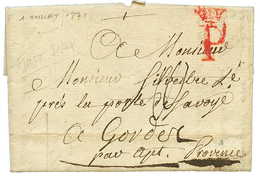 1 JUILLET 1771
P
A Monsieur
Monsieur Silvestre
près la porte de Savoye
a Gordes
par Apt. Provence